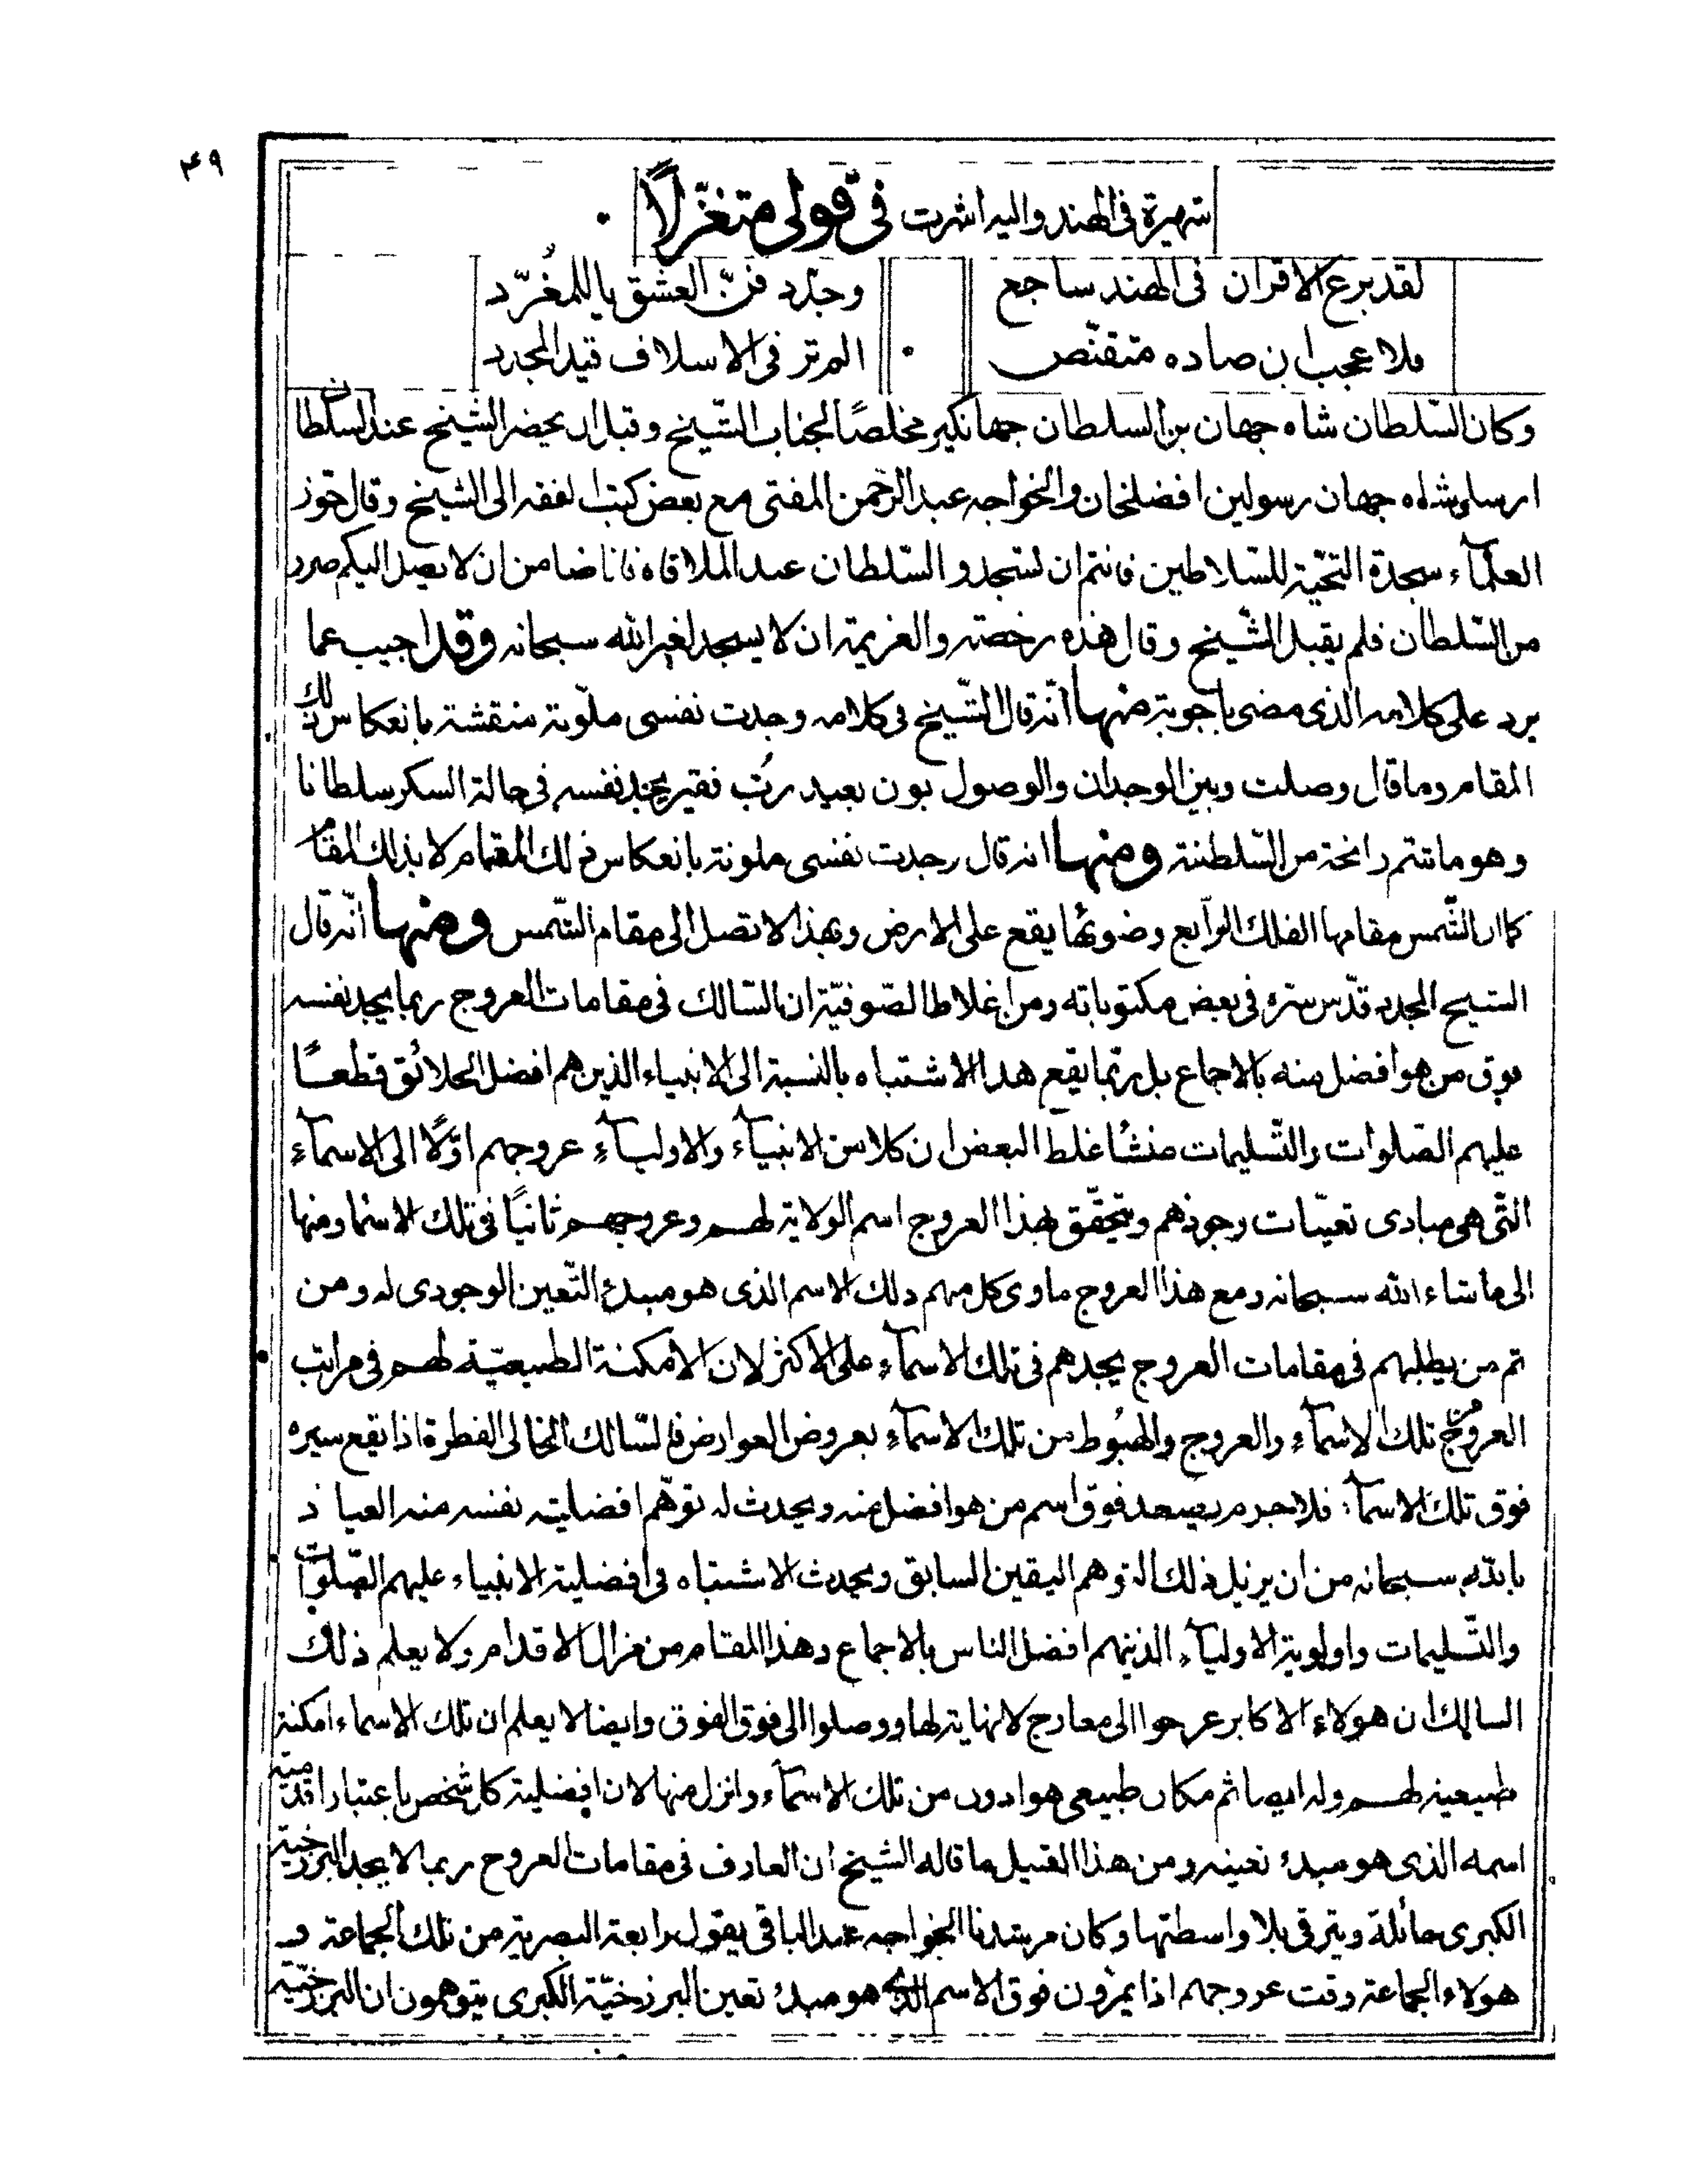 ۴۹
شهيرة فى الهند واليه اشرت فى قولى متغزّلًا
لقد برع الاقران فى الهند ساجع وجدّد فنّ العشق ياللمغرّد
فلا عجب ان صاده متقنّص الم تر فى الاسلاف قيد المجدد
وكان السّلطان شاه جهان بن السلطان جهانكير مخلصًا لجناب الشّيخ وقبل ان يحضر الشيخ عند السلطان
ارسل شاه جهان رسولين افضلخان والخواجه عبد الرحمن المفتى مع بعض كتب الفقه الى الشيخ وقال جوّز
العلمآء سجدة التحيّة للسّلاطين فانتم ان تسجدو السّلطان عند الملاقاة فانا ضامن ان لا يصل اليكم ضرر
من السّلطان فلم يقبل الشّيخ وقال هذه رخصة والعزيمة ان لا يسجد لغير الله سبحانه وقد اجيب عما
يرد على كلامه الذى مضى باجوبة منها انّه قال الشّيخ فى كلامه وجدت نفسى ملوّنة منقشة بانعكاس ذلك
المقام وما قال وصلت وبين الوجدان والوصول بون بعيد ربّ فقير يجد نفسه فى حالة السكر سلطانا
وهو ما شم رائحة من السّلطنة ومنها انه قال وجدت نفسى ملونة بانعكاس ذلك المقام لا بذلك المقام
كما ان الشّمس مقامها الفلك الرآبع وضوئها يقع على الارض وبهذا لا تصل الى مقام الشّمس ومنها انّه قال
الشيخ المجدد قدّس سرّه فى بعض مكتوباته ومن اغلاط الصّوفيّة ان السّالك فى مقامات العروج ربما يجد نفسه
فوق من هو افضل منه بالاجماع بل ربّما يقع هذا الاشتباه بالنسبة الى الانبياء الذين هم افضل الخلائق قطعًا
عليهم الصّلوات والتّسليمات منشأ غلط البعض ان كلا من الانبيآء والاوليآء عروجهم اوّلًا الى الاسمآء
التّى هى مبادى تعيّنات وجودهم ويتحقّق بهذا العروج اسم الولاية لهم وعروجهم ثانيًا فى تلك الاسما ومنها
الى ماشاء الله سبحانه ومع هذا العروج ماوى كل منهم ذلك الاسم الذى هو مبدء التّعين الوجودى له ومن
ثم من يطلبهم فى مقامات العروج يجدهم فى تلك الاسمآء على الاكثر لان الامكنة الطبيعيّة لهم فى مراتب
العروج تلك الاسمآء والعروج والهبُوط من تلك الاسمآء بعروض العوارض فالسّالك العالى الفطرة اذا يقع سيره
فوق تلك الاسمآء فلا جرم يصعد فوق اسم من هو افضل منه ويحدث له توهّم افضلية نفسه منه العياذ
بالله سبحانه من ان يزيل ذلك التوهم اليقين السابق ويحدث الاشتباه فى افضلية الانبياء عليهم الصّلوات
والتّسليمات واولوية الاوليآء الذينهم افضل الناس بالاجماع وهذا المقام من مزال الاقدام ولا يعلم ذلك
السالك ان هولاء الاكابر عرجوا الى معارج لا نهاية لها ووصلوا الى فوق الفوق وايضا لا يعلم ان تلك الاسماء امكنة
طبيعية لهم وله ايضا ثم مكان طبيعى هو ادون من تلك الاسمآء وانزل منها لان افضلية كل شخص باعتبار اقدمية
اسمه الذى هو مبدء تعينه ومن هذا القبيل ما قاله الشيخ ان العارف فى مقامات العروج ربما لا يجد البرزخية
الكبرى حائلة ويترقى بلا واسطتها وكان مرشدنا الخواجه عبد الباقى يقول رابعة البصرية من تلك الجماعة و
هولاء الجماعة وقت عروجهم اذا يمرّون فوق الاسم الذى هو مبدء تعين البرزخيّة الكبرى يتوهمون ان البرزخيّة